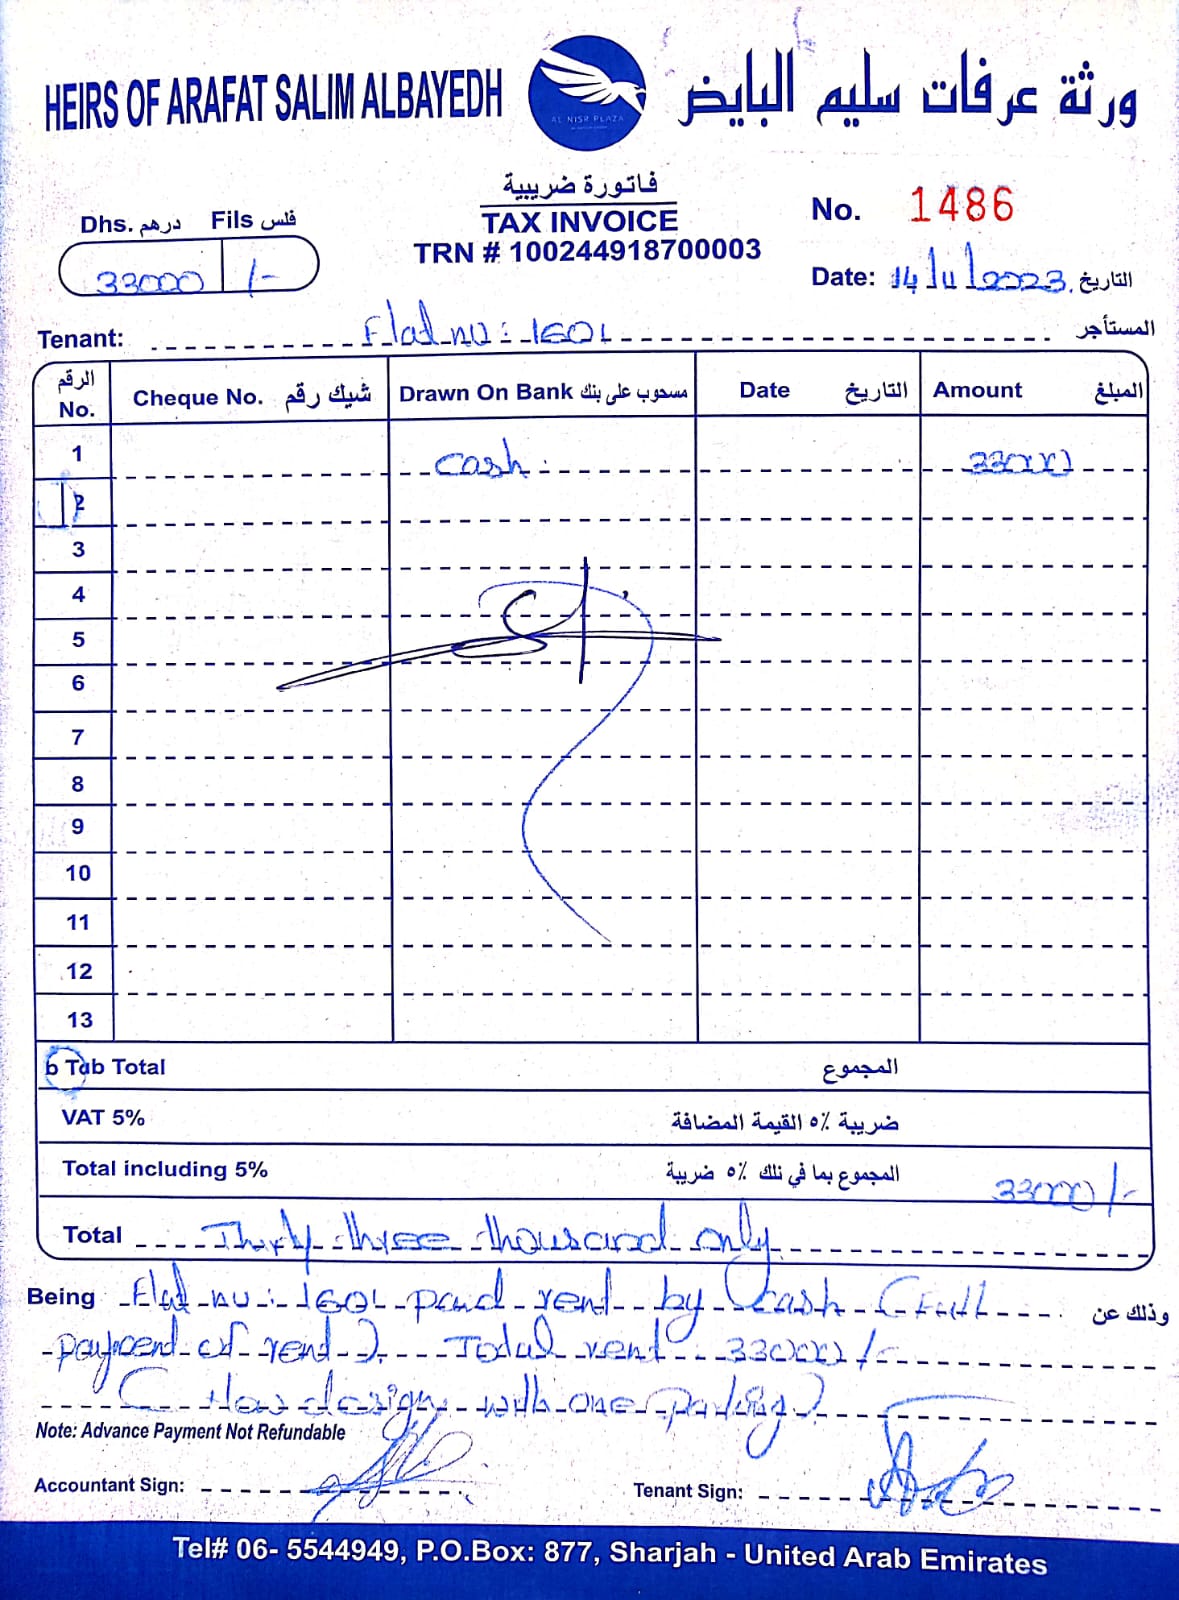 HEIRS OF ARAFAT SALIM ALBAYEDH
AL NISR PLAZA
ورثة عرفات سليم البايض
فاتورة ضريبية
TAX INVOICE
TRN # 100244918700003
Dhs. درهم Fils فلس
33000 /-
No. 1486
Date: 14/11/2023 التاريخ
Tenant: Flat no: 1601 المستأجر
الرقم No. Cheque No. شيك رقم Drawn On Bank مسحوب على بنك Date التاريخ Amount المبلغ
1 cash 33000
2
3
4
5
6
7
8
9
10
11
12
13
b Tab Total المجموع
VAT 5% ضريبة ٥٪ القيمة المضافة
Total including 5% المجموع بما في تلك ٥٪ ضريبة 33000/-
Total Thirty three thousand only
Being Flat no: 1601 paid rent by cash (Full وذلك عن
payment of rent). Total rent 33000/-
design with one parking)
Note: Advance Payment Not Refundable
Accountant Sign: Tenant Sign:
Tel# 06- 5544949, P.O.Box: 877, Sharjah - United Arab Emirates